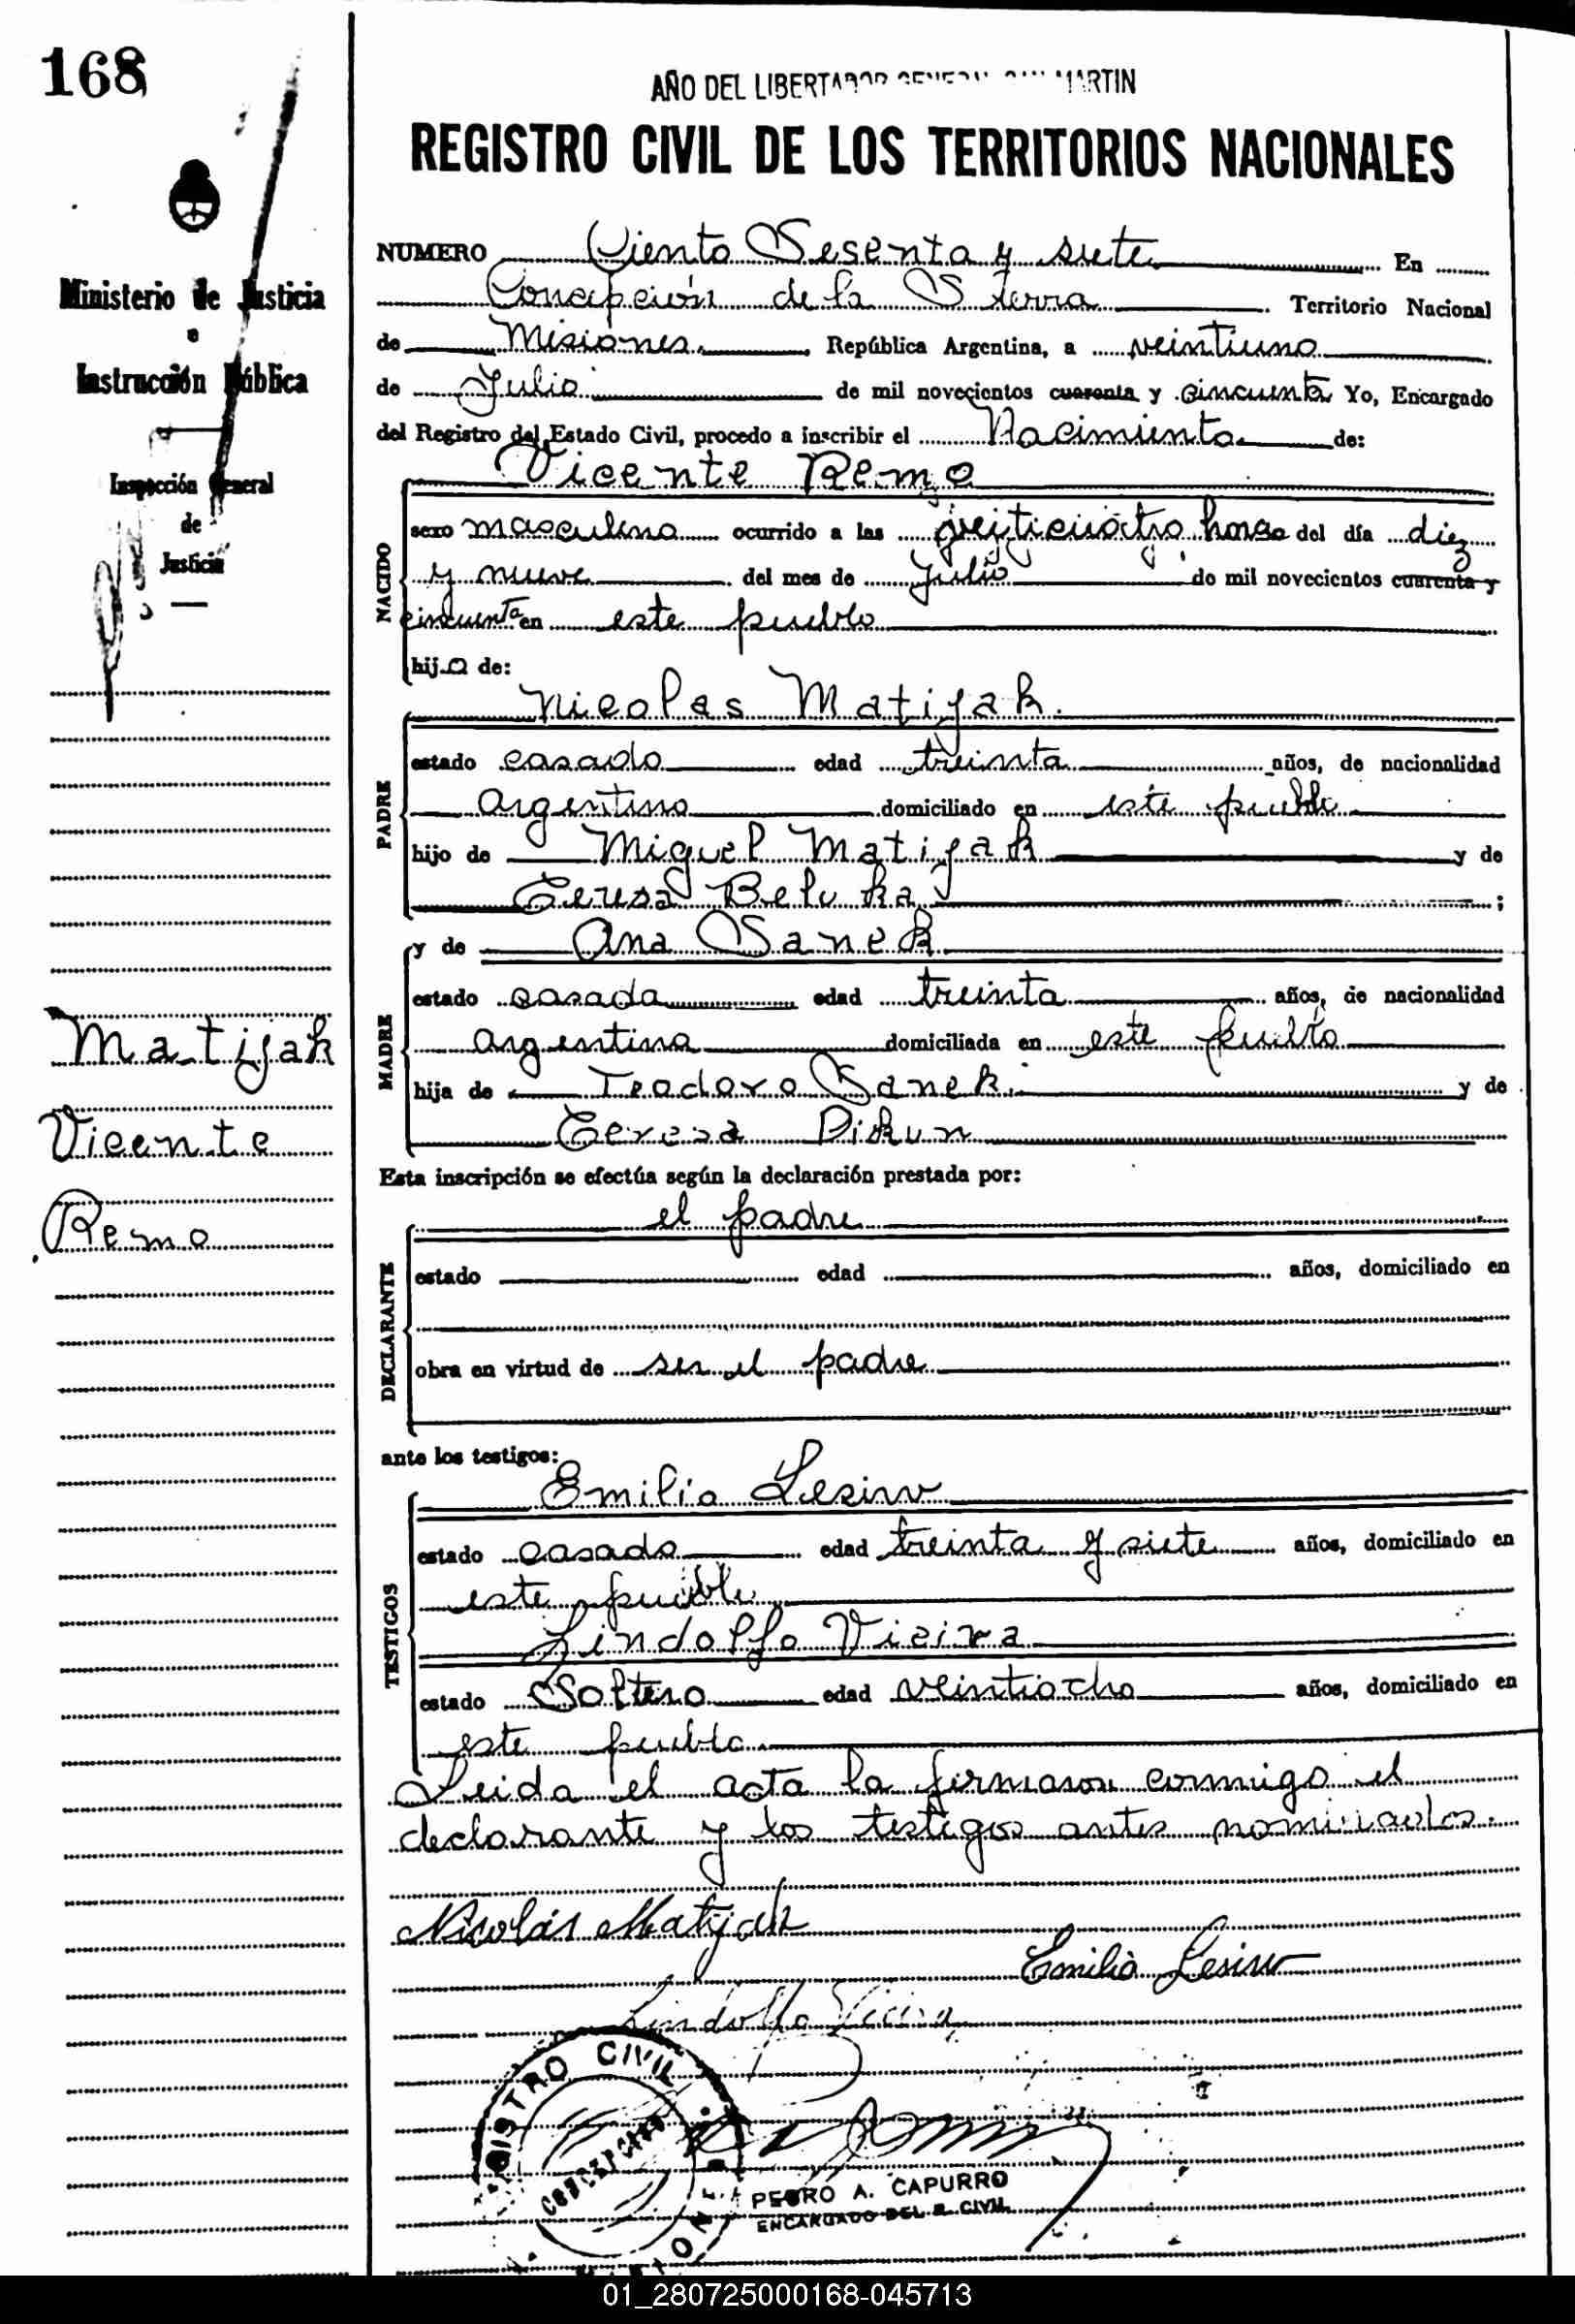 168
Ministerio de Justicia
e
Instrucción Pública
Inspección General
de
Justicia
Matijak
Vicente
Remo
AÑO DEL LIBERTADOR GENERAL SAN MARTIN
REGISTRO CIVIL DE LOS TERRITORIOS NACIONALES
NUMERO Ciento Sesenta y siete En
Concepción de la Sierra Territorio Nacional
de Misiones República Argentina, a veintiuno
de Julio de mil novecientos cuarenta y cincuenta Yo, Encargado
del Registro del Estado Civil, procedo a inscribir el Nacimiento de:
Vicente Remo
NACIDO
sexo masculino ocurrido a las veinticuatro horas del día diez
y nueve del mes de Julio de mil novecientos cuarenta y
cincuenta en este pueblo
hijo de:
Nicolas Matijak
PADRE
estado casado edad treinta años, de nacionalidad
argentino domiciliado en este pueblo
hijo de Miguel Matijak y de
Teresa Beluka ;
y de Ana Sanek
MADRE
estado casada edad treinta años, de nacionalidad
argentina domiciliada en este pueblo
hija de Teodoro Sanek y de
Teresa Dikun
Esta inscripción se efectúa según la declaración prestada por:
el padre
DECLARANTE
estado edad años, domiciliado en
obra en virtud de ser el padre
ante los testigos:
Emilio Lesiw
TESTIGOS
estado casado edad treinta y siete años, domiciliado en
este pueblo
Lindolfo Vieira
estado Soltero edad veintiocho años, domiciliado en
este pueblo
Leida el acta la firmaron conmigo el
declarante y los testigos antes nominados.
Nicolás Matijak
Emilio Lesiw
Lindolfo Vieira
REGISTRO CIVIL
CONCEPCION
PEDRO A. CAPURRO
ENCARGADO DEL R. CIVIL
01_280725000168-045713